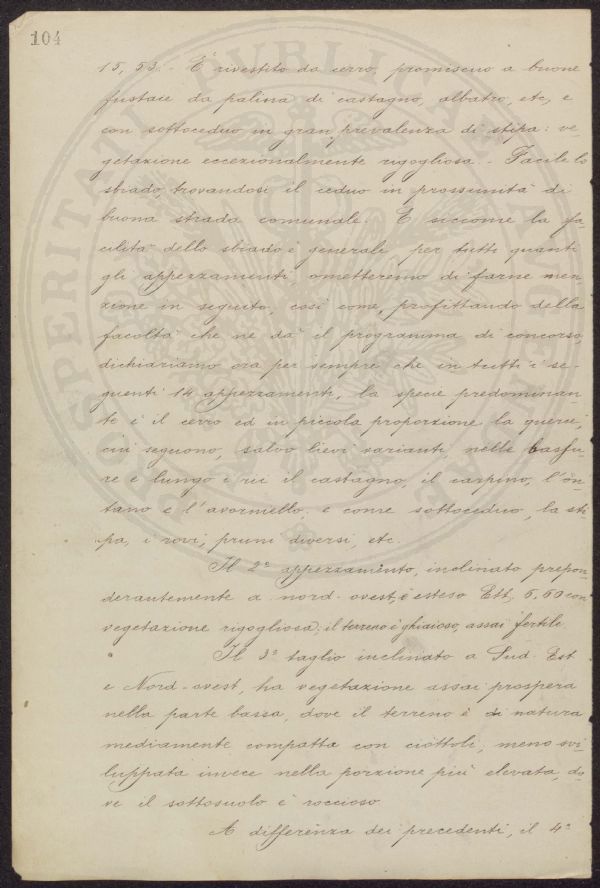 104
15,53. - È rivestito da cerro, promiscuo a buone
fustaie da palina di castagno, albatro, etc, e
con sottoceduo in gran prevalenza di stipa: ve-
getazione eccezionalmente rigogliosa. - Facile lo
sbiado, trovandosi il ceduo in prossimità di
buona strada comunale. E siccome la fa-
cilità dello sbiado è generale per tutti quanti
gli appezzamenti, ometteremo di farne men-
zione in seguito, così come, profittando della
facoltà che ne dà il programma di concorso,
dichiariamo ora per sempre che in tutti i se-
guenti 14 appezzamenti, la specie predominan-
te è il cerro ed in piccola proporzione la querci,
cui seguono, salvo lievi varianti, nelle bassu-
re e lungo i rii il castagno, il carpino, l'on-
tano e l'avorniello, e come sottoceduo, la sti-
pa, i rovi, pruni diversi, etc.
Il 2° appezzamento, inclinato prepon-
derantemente a nord-ovest, è esteso Ett. 5.50 con
vegetazione rigogliosa; il terreno è ghiaioso, assai fertile.
Il 3° taglio inclinato a Sud-Est
e Nord-ovest, ha vegetazione assai prospera
nella parte bassa, dove il terreno è di natura
mediamente compatta con ciottoli, meno svi-
luppata invece nella porzione più elevata, do-
ve il sottosuolo è roccioso.
A differenza dei precedenti, il 4°
PROSPERITATI PVBLICAE AVGENDAE